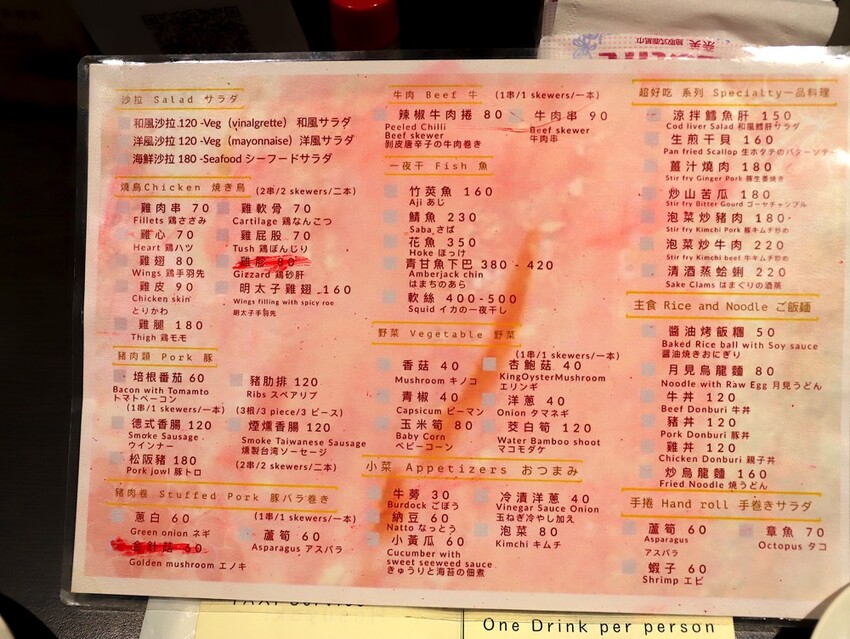 沙拉 Salad サラダ
和風沙拉.120 -Veg（vinalgrette） 和風サラダ
洋風沙拉 120 -Veg（mayonnaise）洋風サラダ
海鮮沙拉 180 -Seafood シーフードサラダ
燒鳥Chicken 焼き鳥 (2串/2 skewers/二本)
雞肉串 70
Fillets 鶏ささみ
雞軟骨 70
Cartilage 鶏なんこつ
雞心 70
Heart 鶏ハツ
雞屁股 70
Tush 鶏ぼんじり
雞翅 80
Wings 鶏手羽先
80
Gizzard 鶏砂肝
雞皮 90
Chicken skin
とりかわ
明太子雞翅 160
Wings filling with spicy roe
明太子手羽先
雞腿 180
Thigh 鶏モモ
豬肉類 Pork 豚
培根番茄 60
Bacon with Tomamto
トマトベーコン
(1串/1 skewers/一本)
豬肋排 120
Ribs スペアリブ
(3根/3 piece/3 ピース)
德式香腸 120
Smoke Sausage
ウインナー
煙燻香腸 120
Smoke Taiwanese Sausage
燻製台湾ソーセージ
(2串/2 skewers/二本)
松阪豬 180
Pork jowl 豚トロ
豬肉卷 Stuffed Pork 豚バラ巻き
(1串/1 skewers/一本)
蔥白 60
Green onion ネギ
蘆筍 60
Asparagus アスパラ
金針菇 60
Golden mushroom エノキ
牛肉 Beef 牛 (1串/1 skewers/一本)
辣椒牛肉捲 80
Peeled Chilli
Beef skewer
剥皮唐辛子の牛肉巻き
牛肉串 90
Beef skewer
牛肉串
一夜干 Fish 魚
竹莢魚 160
Aji あじ
鯖魚 230
Saba さば
花魚 350
Hoke ほっけ
青甘魚下巴 380 - 420
Amberjack chin
はまちのあら
軟絲 400-500
Squid イカの一夜干し
野菜 Vegetable 野菜
(1串/1 skewers/一本)
香菇 40
Mushroom キノコ
杏鮑菇 40
KingOysterMushroom
エリンギ
青椒 40
Capsicum ピーマン
洋蔥 40
Onion タマネギ
玉米筍 80
Baby Corn
ベビーコーン
茭白筍 120
Water Bamboo shoot
マコモダケ
小菜 Appetizers おつまみ
牛蒡 30
Burdock ごぼう
冷漬洋蔥 40
Vinegar Sauce Onion
玉ねぎ冷やし加え
納豆 60
Natto なっとう
泡菜 80
Kimchi キムチ
小黃瓜 60
Cucumber with
sweet seaweed sauce
きゅうりと海苔の佃煮
超好吃 系列 Specialty一品料理
涼拌鱈魚肝 150
Cod liver Salad 和風鱈肝サラダ
生煎干貝 160
Pan fried Scallop 生ホタテのバターソテー
薑汁燒肉 180
Stir fry Ginger Pork 豚生姜焼き
炒山苦瓜 180
Stir fry Bitter Gourd ゴーヤチャンプル
泡菜炒豬肉 180
Stir fry Kimchi Pork 豚キムチ炒め
泡菜炒牛肉 220
Stir fry Kimchi beef 牛キムチ炒め
清酒蒸蛤蜊 220
Sake Clams はまぐりの酒蒸
主食 Rice and Noodle ご飯麺
醬油烤飯糰 50
Baked Rice ball with Soy sauce
醤油焼きおにぎり
月見烏龍麵 80
Noodle with Raw Egg 月見うどん
牛丼 120
Beef Donburi 牛丼
豬丼 120
Pork Donburi 豚丼
雞丼 120
Chicken Donburi 親子丼
炒烏龍麵 160
Fried Noodle 焼うどん
手捲 Hand roll 手巻きサラダ
蘆筍 60
Asparagus
アスパラ
章魚 70
Octopus タコ
蝦子 60
Shrimp エビ
One Drink per person